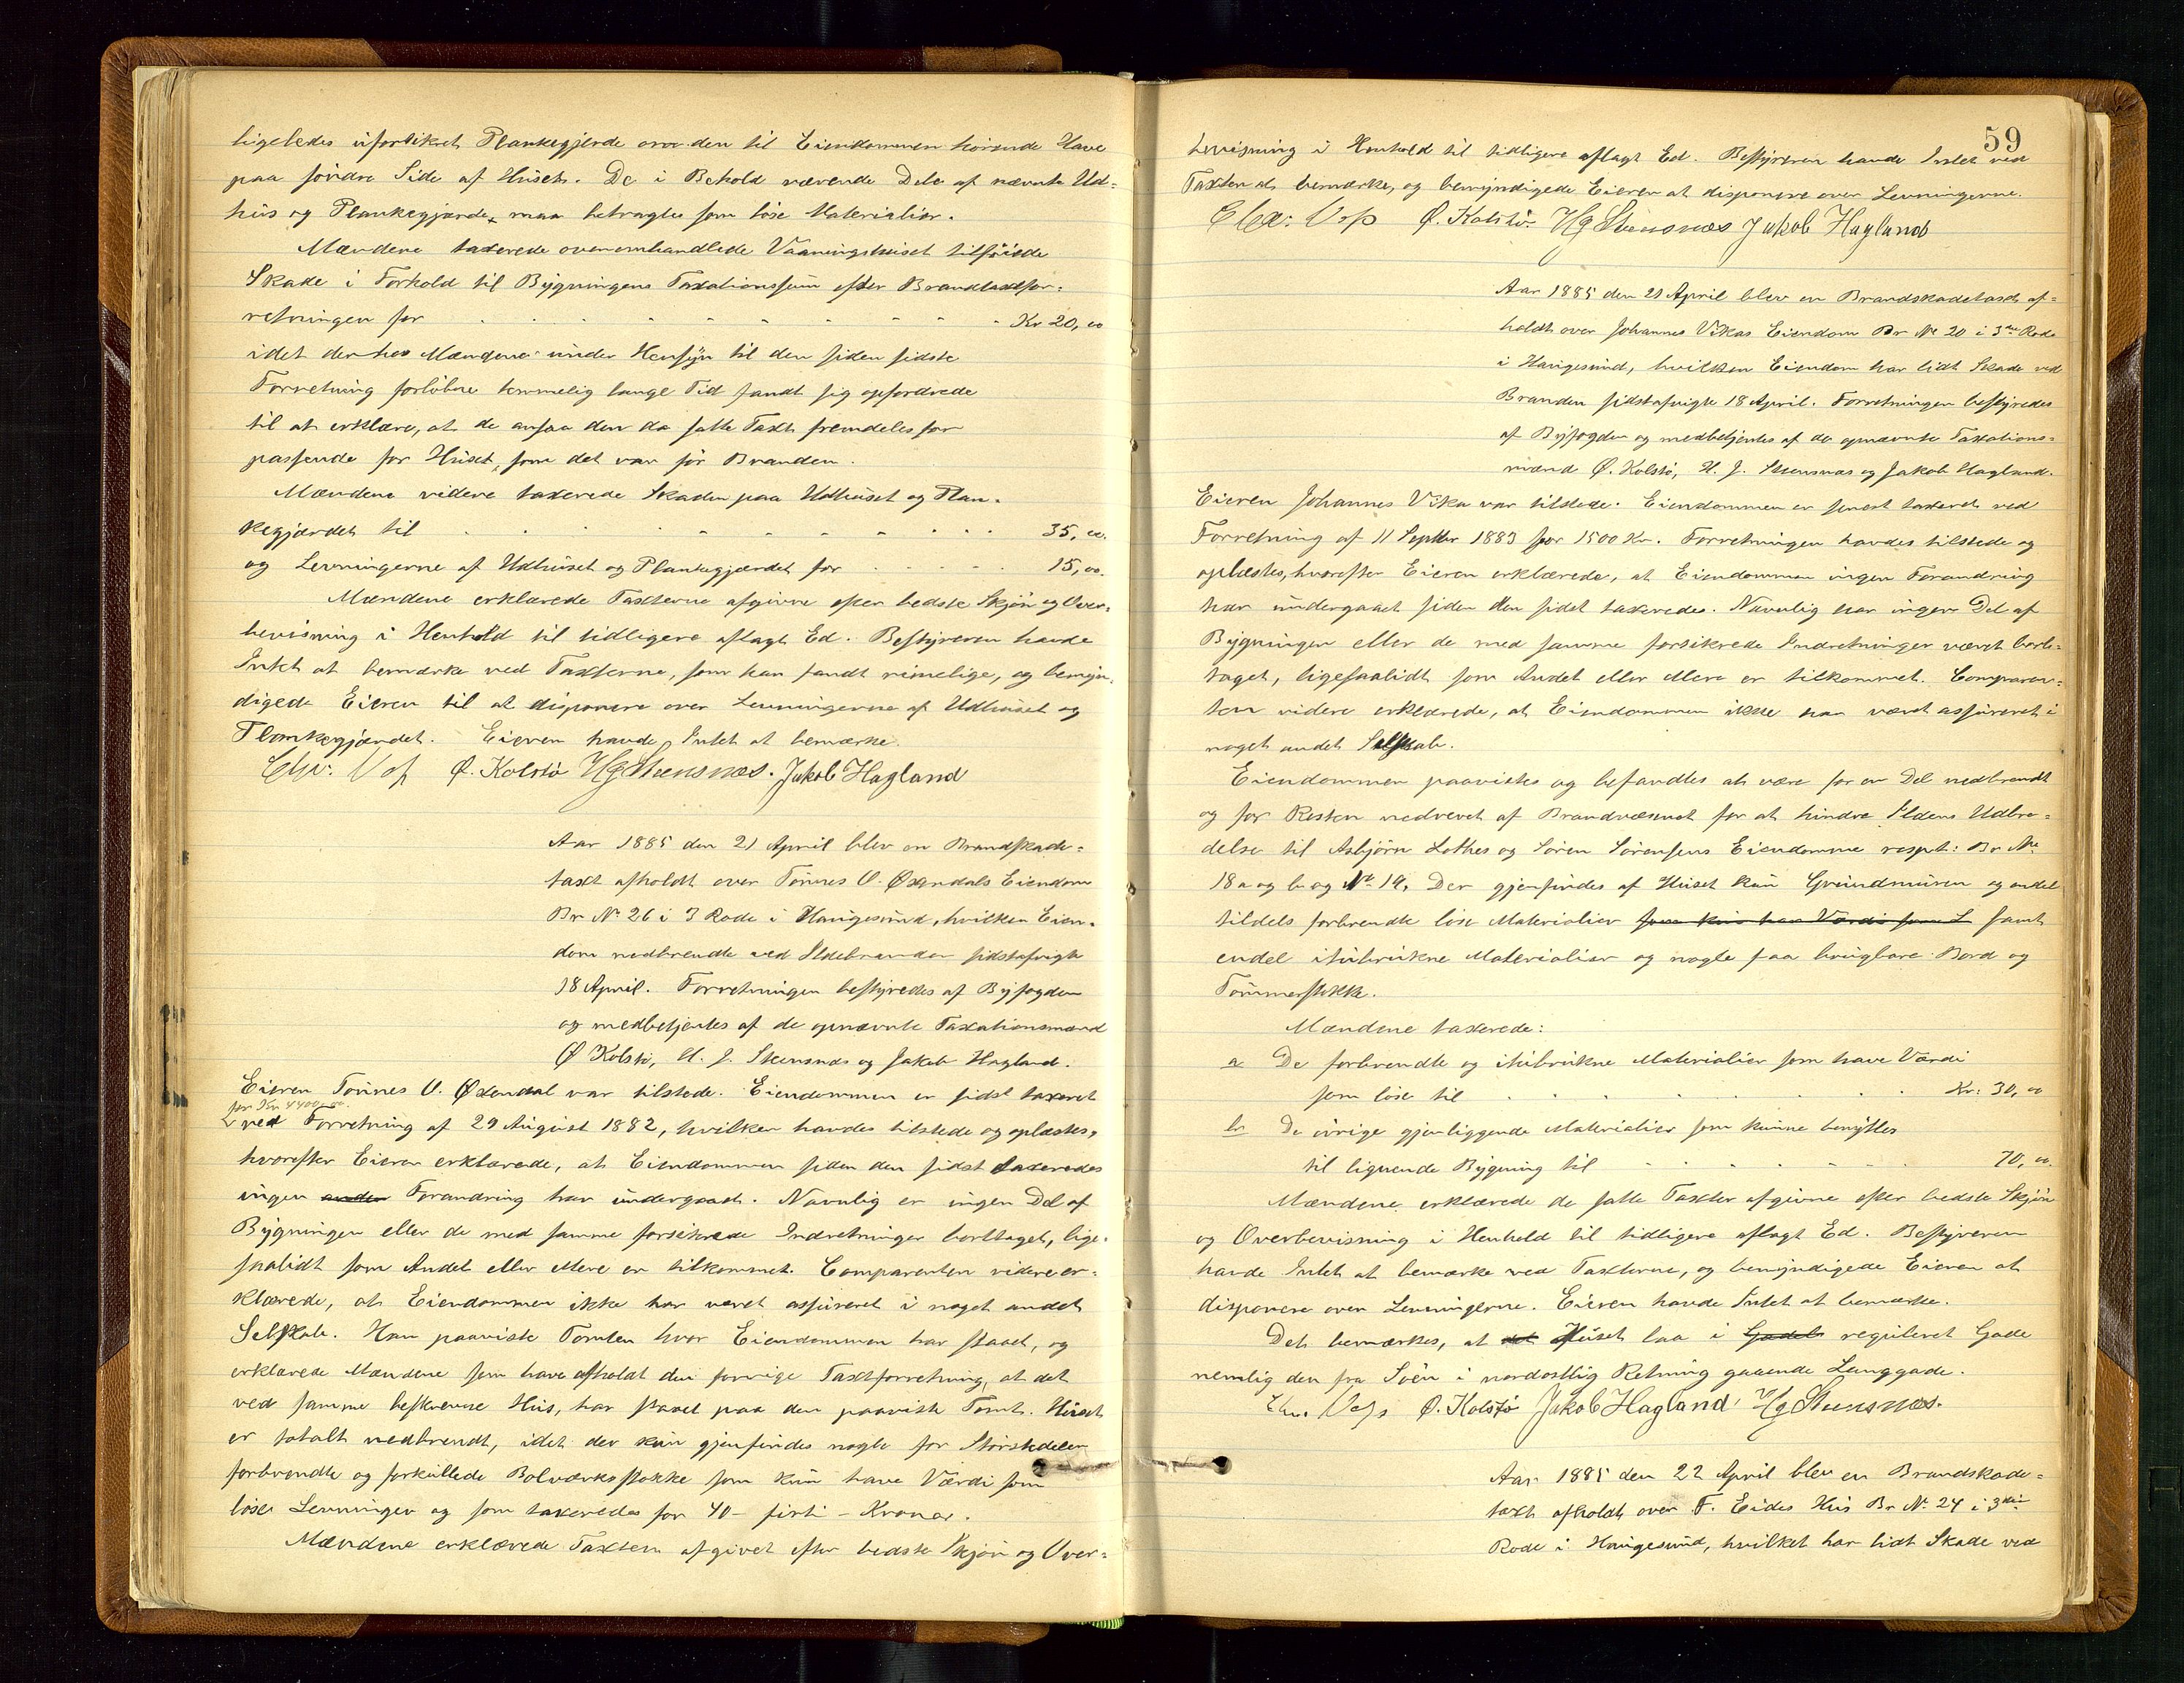 ligeledes uforsikret Plankegjerde over den til Eiendommen hørende Have
paa søndre Side af Huset. De i Behold værende Dele af nævnte Ud-
hus og Plankegjærde maa betragtes som løse Materialier.
Mændene taxerede ovenomhandlede Vaaningshuset tilføiede
Skade i Forhold til Bygningens Taxationssum efter Brandtaxtfor-
retningen for . . . . . . . . Kr 20,00
idet derhos Mændene under Hensyn til den siden sidste
Forretning forløbne temmelig lange Tid fandt sig opfordrede
til at erklære, at de ansaa den da satte Taxt fremdeles for
passende for Huset, som det var før Branden.
Mændene videre taxerede Skaden paa Udhuset og Plan-
kegjærdet til . . . . . . . . 35,00.
og Levningerne af Udhuset og Plankegjærdet for . . . . . 15,00.
Mændene erklærede Taxterne afgivne efter bedste Skjøn og Over-
bevisning i Henhold til tidligere aflagt Ed. Bestyreren havde
Intet at bemærke ved Taxterne, som han fandt rimelige, og bemyn-
digede Eieren til at disponere over Levningerne af Udhuset og
Plankegjærdet. Eieren havde Intet at bemærke.
Ø. Kolstø HgStensnæs. Jakob Hagland
Aar 1885 den 21 April blev en Brandskade-
taxt afholdt over Tønnes O. Øxendals Eiendom
Br No 26 i 3 Rode i Haugesund, hvilken Eien-
dom nedbrendte ved Ildebranden sidstafvigte
18 April. Forretningen bestyredes af Byfogden
og medbetjentes af de opnævnte Taxationsmænd
Ø Kolstø, H. J. Stensnæs og Jakob Hagland.
Eieren Tønnes O. Øxendal var tilstede. Eiendommen er sidst taxeret
for Kr 4400,00
ved Forretning af 29 August 1882, hvilken havdes tilstede og oplæstes,
hvorefter Eieren erklærede, at Eiendommen siden den sidst taxeredes
ingen anden Forandring har undergaaet. Navnlig er ingen Del af
Bygningen eller de med samme forsikrede Indretninger borttaget, lige-
saalidt som Andet eller Mere er tilkommet. Comparenten videre er-
klærede, at Eiendommen ikke har været assureret i noget andet
Selskab. Han paaviste Tomten hvor Eiendommen har staaet, og
erklærede Mændene som have afholdt den forrige Taxtforretning, at det
ved samme beskrevne Hus, har staaet paa den paaviste Tomt. Huset
er totalt nedbrendt, idet der kun gjenfindes nogle for Størstedelen
forbrendte og forkullede Bolværksstokke som kun have Værdi som
løse Levninger og som taxeredes for 40 - firti - Kroner.
Mændene erklærede Taxten afgivet efter bedste Skjøn og Over-
59
bevisning i Henhold til tidligere aflagt Ed. Bestyreren havde Intet ved
Taxten at bemærke, og bemyndigede Eieren at disponere over Levningerne.
Ø. Kolstø. HgStensnæs Jakob Hagland
Aar 1885 den 21 April blev en Brandskadetaxt af-
holdt over Johannes Vikas Eiendom Br No 20 i 3die Rode
i Haugesund, hvilken Eiendom har lidt Skade ved
Branden sidstafvigte 18 April. Forretningen bestyredes
af Byfogden og medbetjentes af de opnævnte Taxations-
mænd Ø. Kolstø, H. J. Stensnæs og Jakob Hagland.
Eieren Johannes Vika var tilstede. Eiendommen er senest taxeret ved
Forretning af 11 Septbr 1883 for 1500 Kr. Forretningen havdes tilstede og
oplæstes, hvorefter Eieren erklærede, at Eiendommen ingen Forandring
har undergaaet siden den sidst taxeredes. Navnlig har ingen Del af
Bygningen eller de med samme forsikrede Indretninger været bort-
taget, ligesaalidt som Andet eller Mere er tilkommet. Comparen-
ten videre erklærede, at Eiendommen ikke har været assureret i
noget andet Selskab.
Eiendommen paavistes og befandtes at være for en Del nedbrendt
og for Resten nedrevet af Brandvæsenet for at hindre Ildens Udbre-
delse til Asbjørn Lothes og Søren Sørensens Eiendomme respt: Br No
18 a og b og No 19. Der gjenfindes af Huset kun Grundmuren og endel
tildels forbrendte løse Materialier som kun har Værdi som L samt
endel itubrukne Materialier og nogle faa brugbare Bord og
Tømmerstokke.
Mændene taxerede:
a De forbrendte og itubrukne Materialier som have Værdi
som løse til . . . . . . . Kr: 30,00
b De øvrige gjenliggende Materialier som kunne benyttes
til lignende Bygning til . . . . . . 70,00.
Mændene erklærede de satte Taxter afgivne efter bedste Skjøn
og Overbevisning i Henhold til tidligere aflagt Ed. Bestyreren
havde Intet at bemærke ved Taxterne, og bemyndigede Eieren at
disponere over Levningerne. Eieren havde Intet at bemærke.
Det bemærkes, at det Huset laa i Gadel reguleret Gade
nemlig den fra Søen i nordostlig Retning gaaende Langgade.
Ø. Kolstø Jakob Hagland HgStensnæs.
Aar 1885 den 22 April blev en Brandskade-
taxt afholdt over T. Eides Hus Br No 24 i 3die
Rode i Haugesund, hvilket har lidt Skade ved